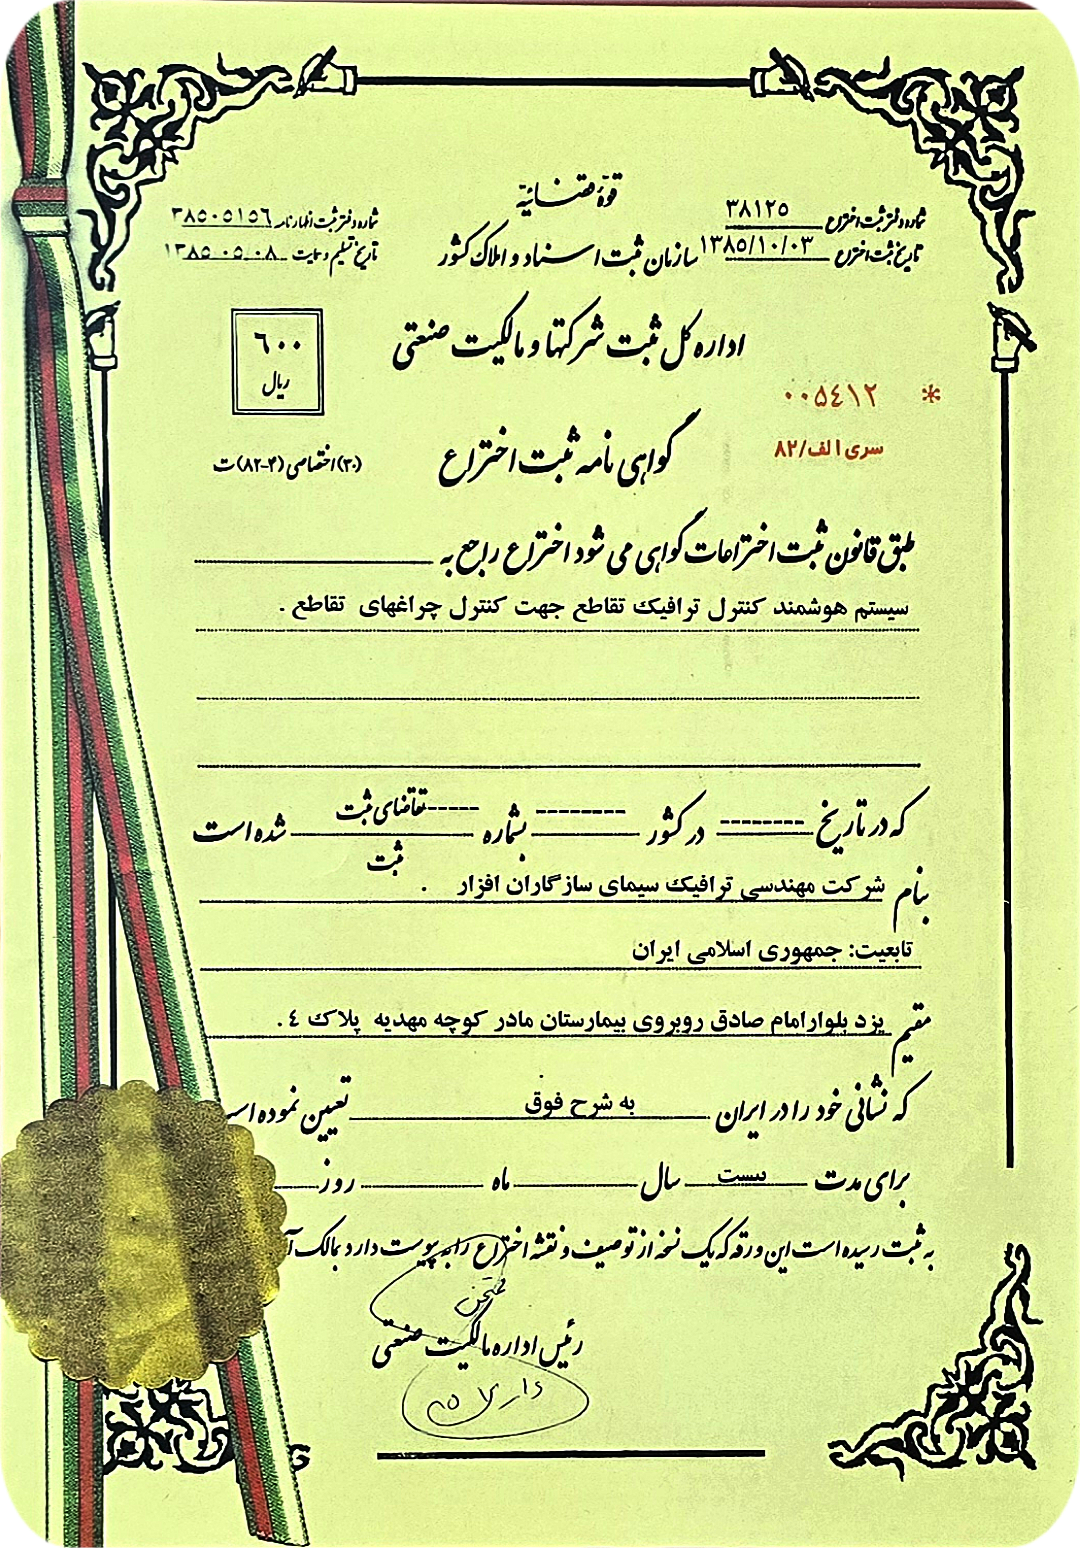 قوهٔ قضائیه
شماره دفتر ثبت اختراع ۳۸۱۲۵
شماره دفتر ثبت اظهارنامه ۳۸۵۰۵۱۵۶
سازمان ثبت اسناد و املاک کشور
تاریخ ثبت اختراع ۱۳۸۵/۱۰/۰۳
تاریخ تسلیم و حمایت ۱۳۸۵-۰۵-۰۸
اداره کل ثبت شرکتها و مالکیت صنعتی
۶۰۰
ریال
* ۰۰۵۴۱۲
سری الف/۸۲
گواهی نامه ثبت اختراع
(۳۰) اختصاصی (۴-۸۲) ت
طبق قانون ثبت اختراعات گواهی می شود اختراع راجع به
سیستم هوشمند کنترل ترافیک تقاطع جهت کنترل چراغهای تقاطع .
که در تاریخ -------- در کشور -------- بشماره ----- تقاضای ثبت شده است
ثبت
بنام شرکت مهندسی ترافیک سیمای سازگاران افزار .
تابعیت: جمهوری اسلامی ایران
مقیم یزد بلوارامام صادق روبروی بیمارستان مادر کوچه مهدیه پلاک ٤ .
که نشانی خود را در ایران به شرح فوق تعیین نموده
برای مدت بیست سال ماه روز
به ثبت رسیده است این ورقه که یک نسخه از توصیف و نقشه اختراع را به پیوست دارد بمالک
رئیس اداره مالکیت صنعتی